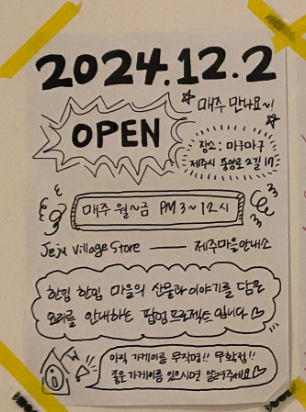 2024.12.2
매주 만나요~!
OPEN
장소 : 마구마구
제주시 중앙로 2길 17
매주 월~금 PM 3~12시
Jeju Village Store — 제주마을안내소
한입 한입 마을의 산물과 이야기를 담은
요리를 안내하는 팝업 프로젝트 입니다♡
아직 가게이름 무직명!! 무확정!!
좋은 가게이름 있으시면 알려주세요♡